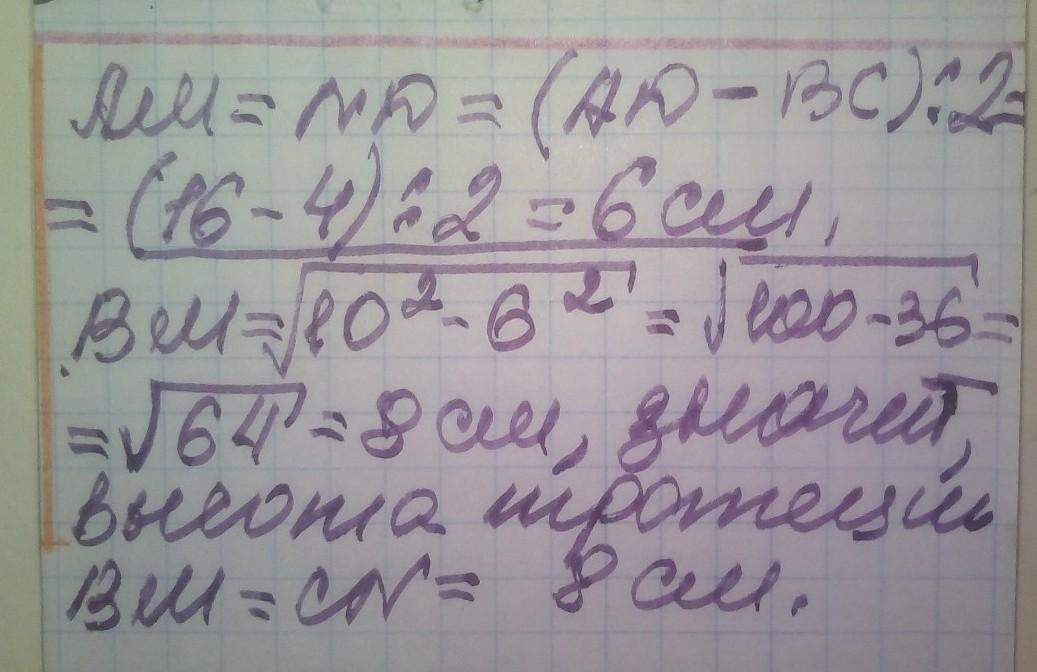 АМ = ND = (AD - BC) : 2 =
= (16 - 4) : 2 = 6 см,
BM = √10² - 6² = √100 - 36 =
= √64 = 8 см, значит,
высота трапеции
BM = CN = 8 см.